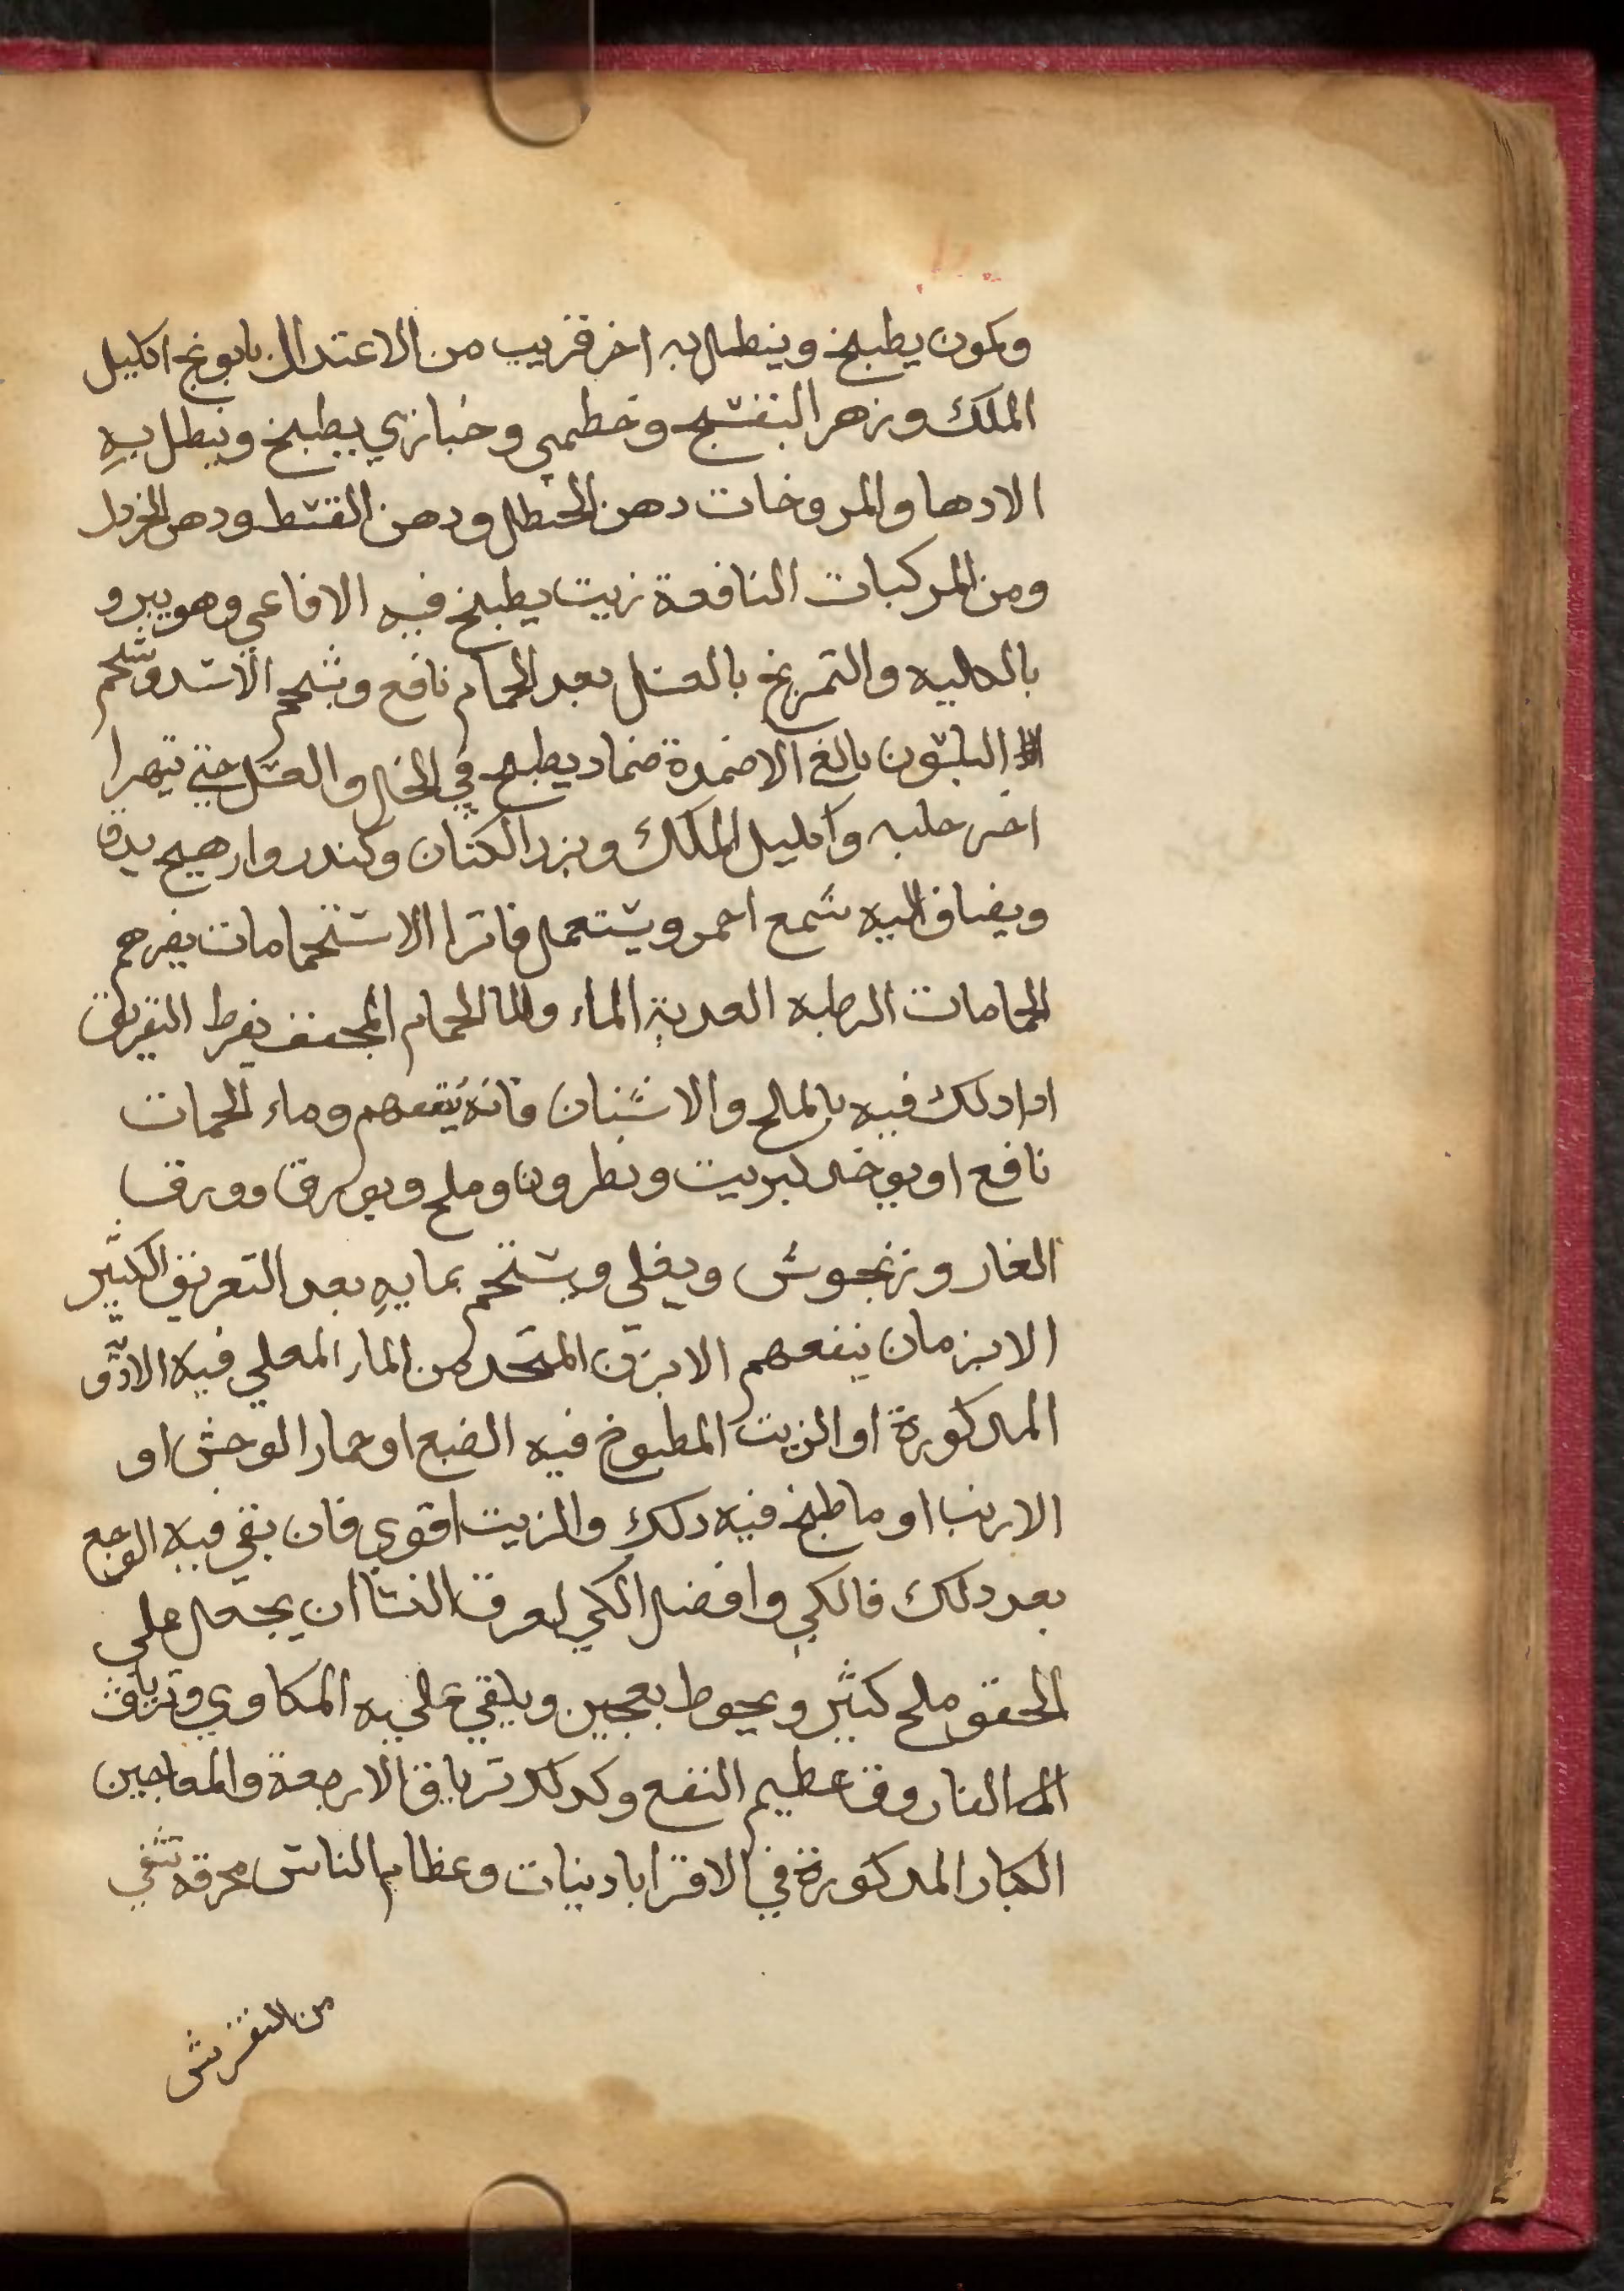 وكمون يطبخ وينطل به اخر قريب من الاعتدال بابونج اكليل
الملك وزهر البنفسج وخطمي وخبازي يطبخ وينطل به
الادها والمروخات دهن الحنطل ودهن القسط ودهن الخردل
ومن المركبات النافعة زيت يطبخ فيه الافاعي وهو يبرو
بالكليه والتمريخ بالعسل بعد الحمام نافع وشحم الاسد وشحم
البلسون بالغ الاضمدة ضماد يطبخ في الخل والعسل حتي تيهرا
اخر حلبه واكليل الملك وبزر الكتان وكندر وار هيج يدق
ويضاف اليه شمع احمر ويستعمل فاترا الاستحمامات يضرهم
الحمامات الرطبه العدبة الماء واما الحمام المجفف يفرط التعريق
ادا دلك فيه بالملح والاشنان فانه ينفعهم وماء الحمات
نافع او يوخد كبريت ونطرونا وملح وبورق وورق
الغار وزنجوش ويغلي ويستحم بمايه بعد التعريق الكثير
الابزمان ينفعهم الابزن المتخد من الماء المغلي فيه الادو
المدكورة او الزيت المطبوخ فيه الضبع او حمار الوحش او
الارنب او ما طبخ فيه دلك والزيت اقوي فان بقي فيه الوجع
بعد دلك فالكي وافضل الكي لعرق النسا ان يجعل علي
الحقو ملح كثير ويحوط بعجين ويلقي عليه المكاوي وترياق
الفاروق عظيم النفع وكدلك ترياق الاربعة والمعاجين
الكبار المدكورة في الاقرابادينات وعظام الناس محرقة تشفي
من النقرس